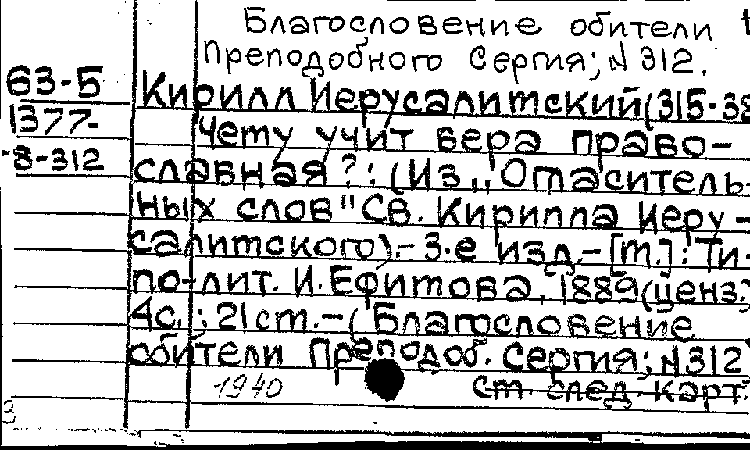 Благословение обители
Преподобного Сергия; N 312.
63-5
Кирилл Иерусалимский (315-38
1377-
Чему учит вера право-
8-312
славная?: (Из „Огласитель-
ных слов" Св. Кирилла Иеру-
салимского).- 3-е изд.- [М.]: Ти-
по-лит. И. Ефимова, 1889 (ценз.)
4с.; 21 см.- (Благословение
обители Преподоб. Сергия; N 312
1940
См. след. карт.